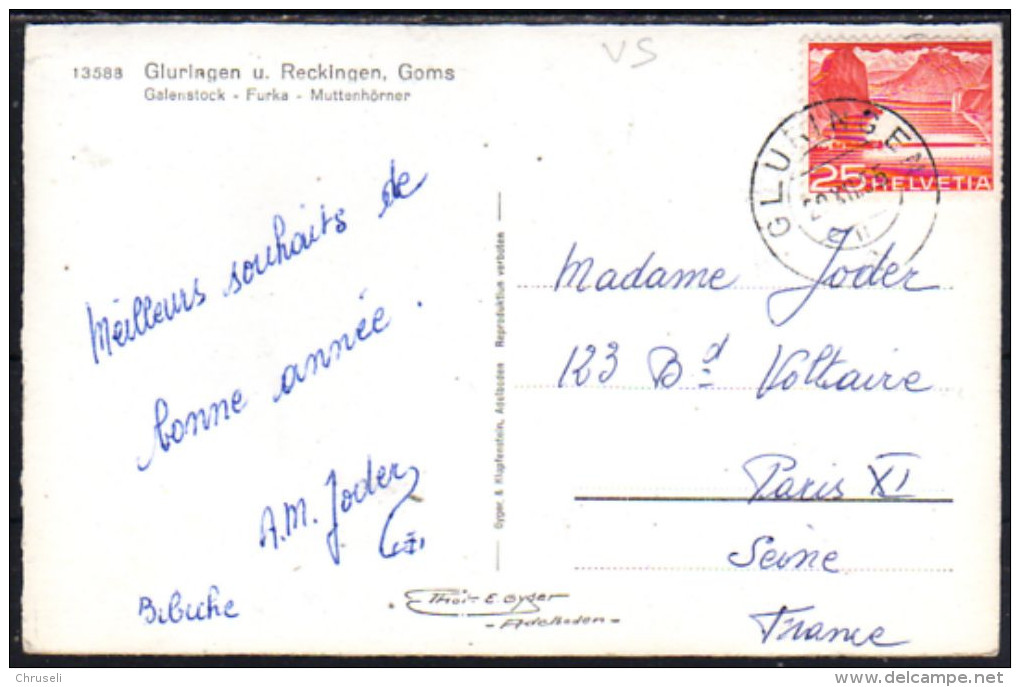 VS
13588 Gluringen u. Reckingen, Goms
Galenstock - Furka - Muttenhörner
25 HELVETIA
GLURINGEN
Meilleurs souhaits de
bonne année.
A.M. Joder
Bibiche
Gyger & Klopfenstein, Adelboden Reproduktion verboten
Madame Joder
123 Bd Voltaire
Paris XI
Seine
France
Phot E. Gyger
- Adelboden -
Chruseli
delcampe.net